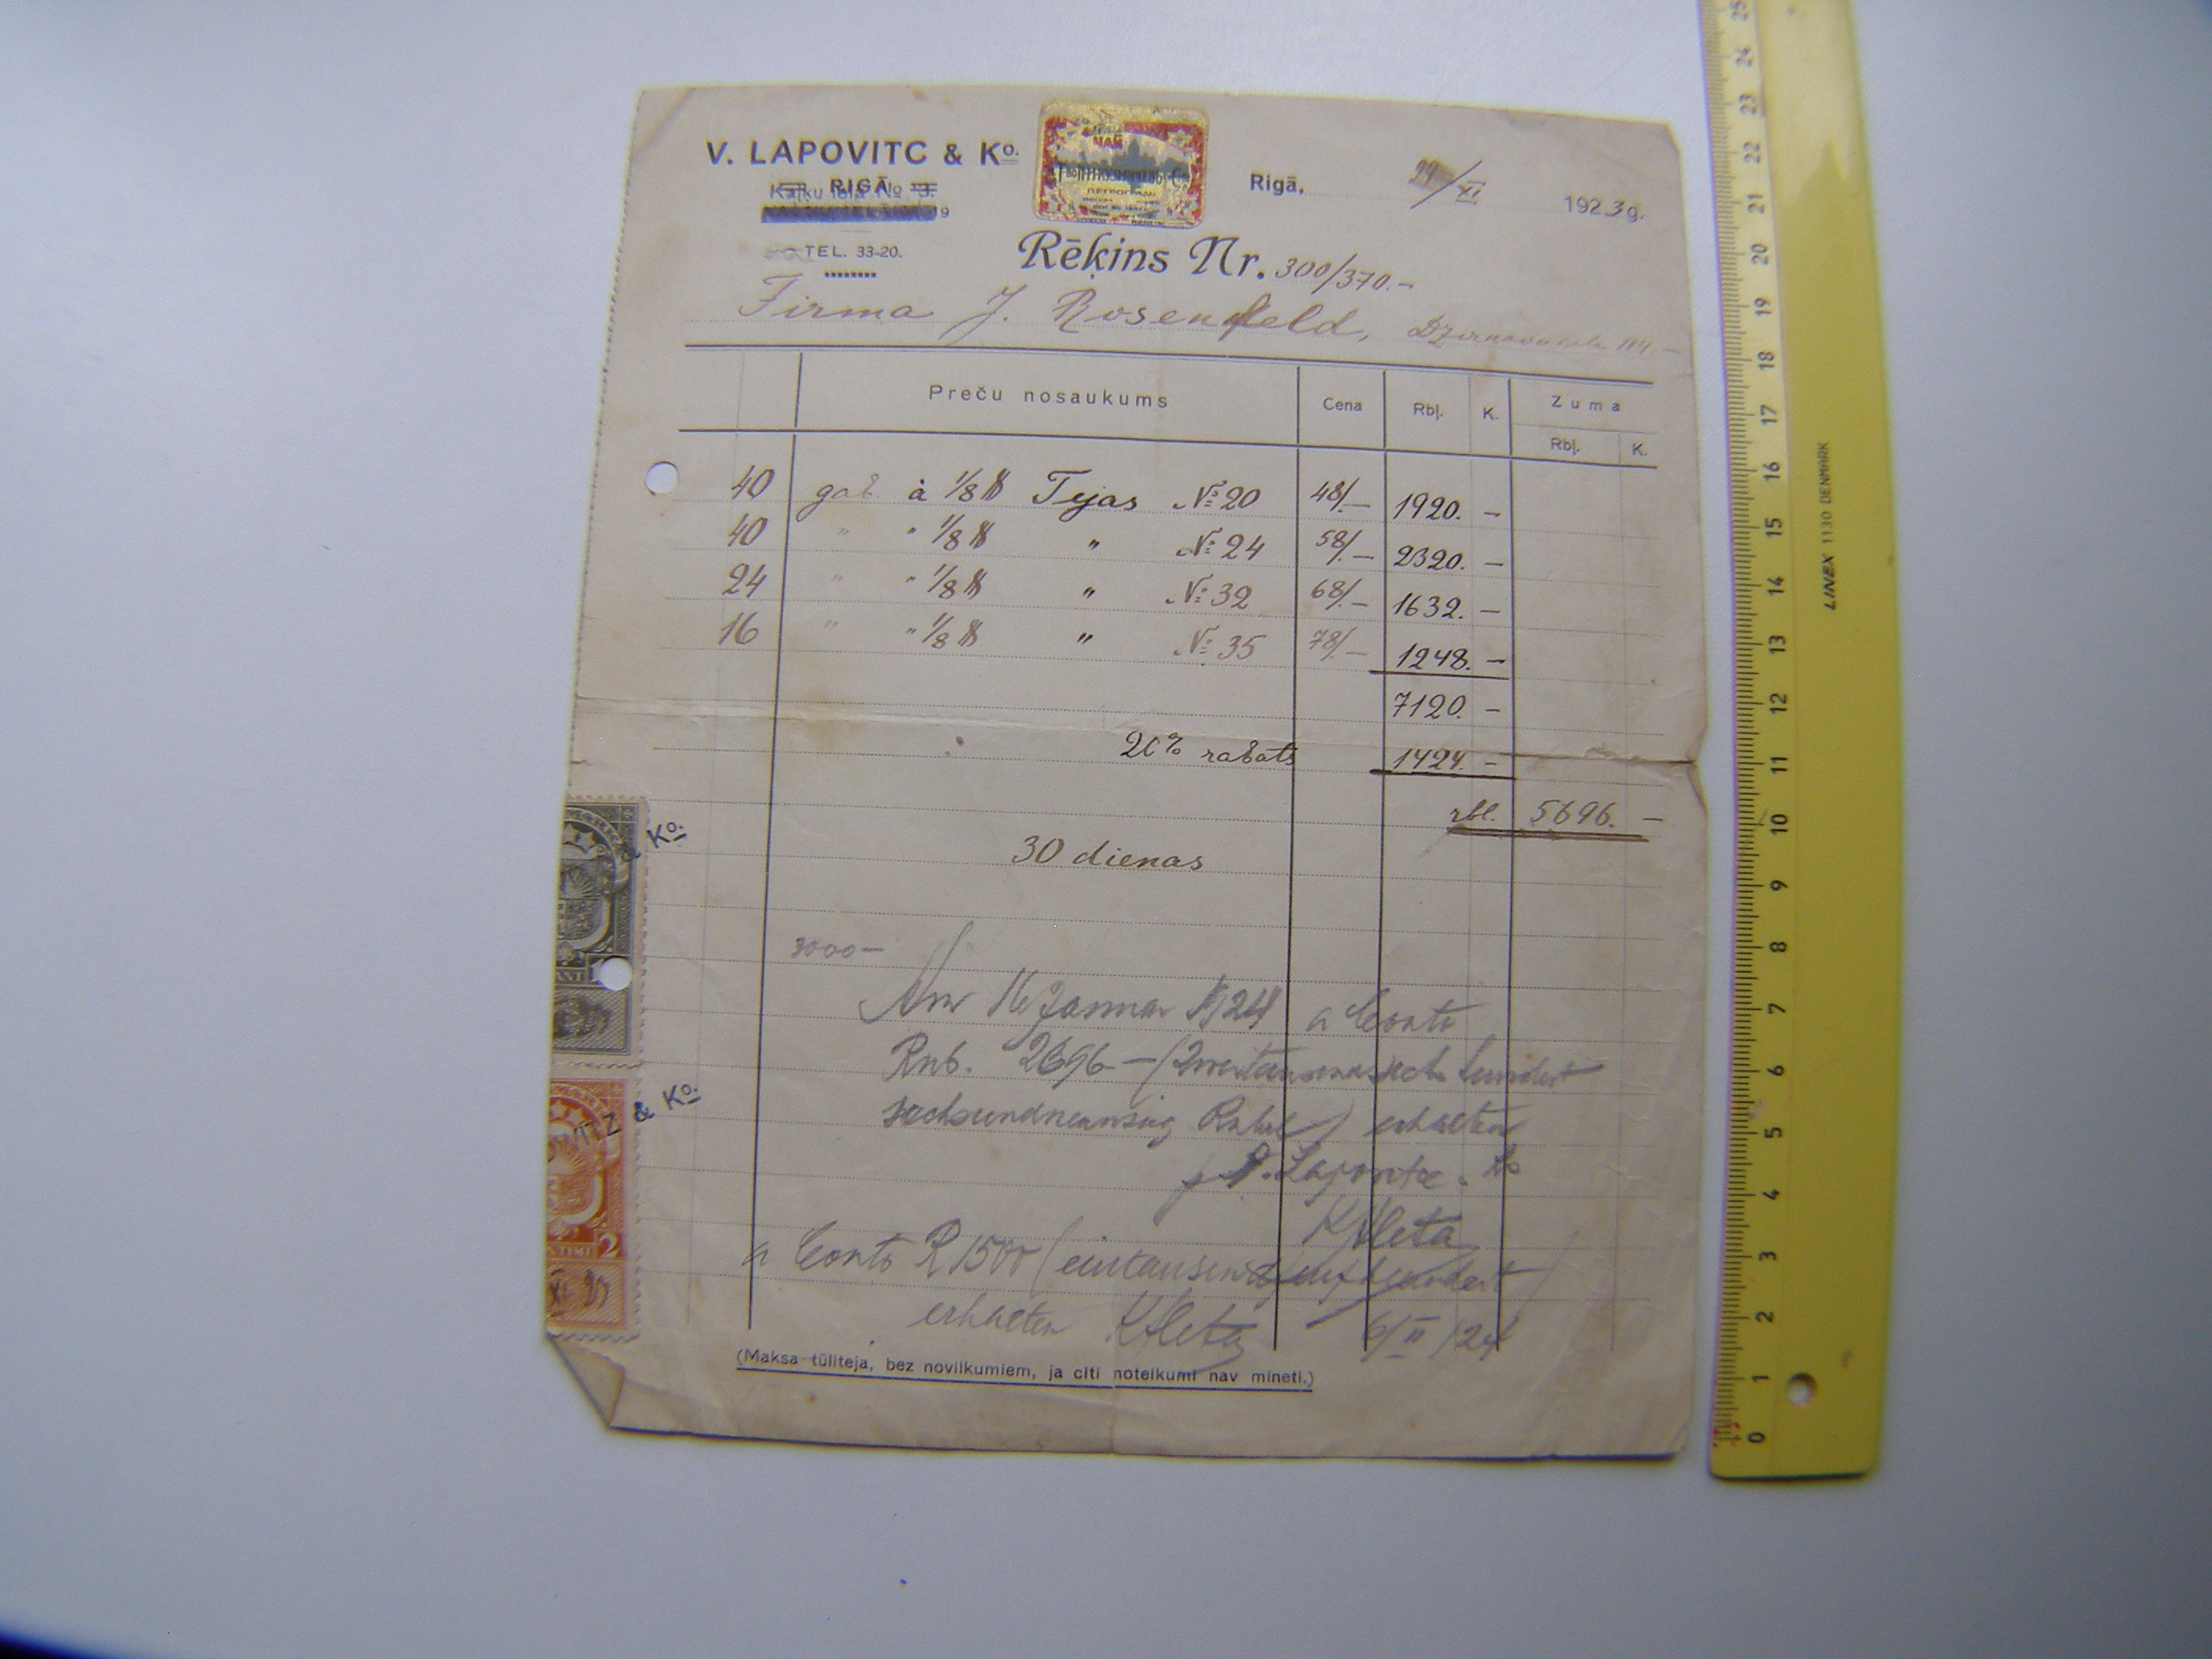 V. LAPOVITC & Ko.
RIGĀ
Kaļķu ielā No 3.
TEL. 33-20.
МАЙ
ПЕТРОГРАД
МОСКВА
Rigā, 29/XI 1923 g.
Rēķins Nr. 300/370.-
Firma J. Rosenfeld, Dzirnavu iela 114.-
Preču nosaukums Cena Rbļ. K. Zuma
Rbļ. K.
40 gab à 1/8 ℔ Tejas № 20 48/- 1920. -
40 " " 1/8 ℔ " № 24 58/- 2320. -
24 " " 1/8 ℔ " № 32 68/- 1632. -
16 " " 1/8 ℔ " № 35 78/- 1248. -
7120. -
20% rabats 1424. -
rbl. 5696. -
30 dienas
& Ko.
3000-
Am 16 Januar 1924 a Conto
Rub. 2696 - (Zweitausendsechshundert
sechsundneunzig Rubel) erhalten
p. V. Lapovitc & Ko
ITZ & Ko.
2
a Conto R 1500 (eintausendfünfhundert)
erhalten 6/II/24
(Maksa tūliteja, bez novilkumiem, ja citi noteikumi nav mineti.)
LINEX 1130 DENMARK
25 24 23 22 21 20 19 18 17 16 15 14 13 12 11 10 9 8 7 6 5 4 3 2 1 0